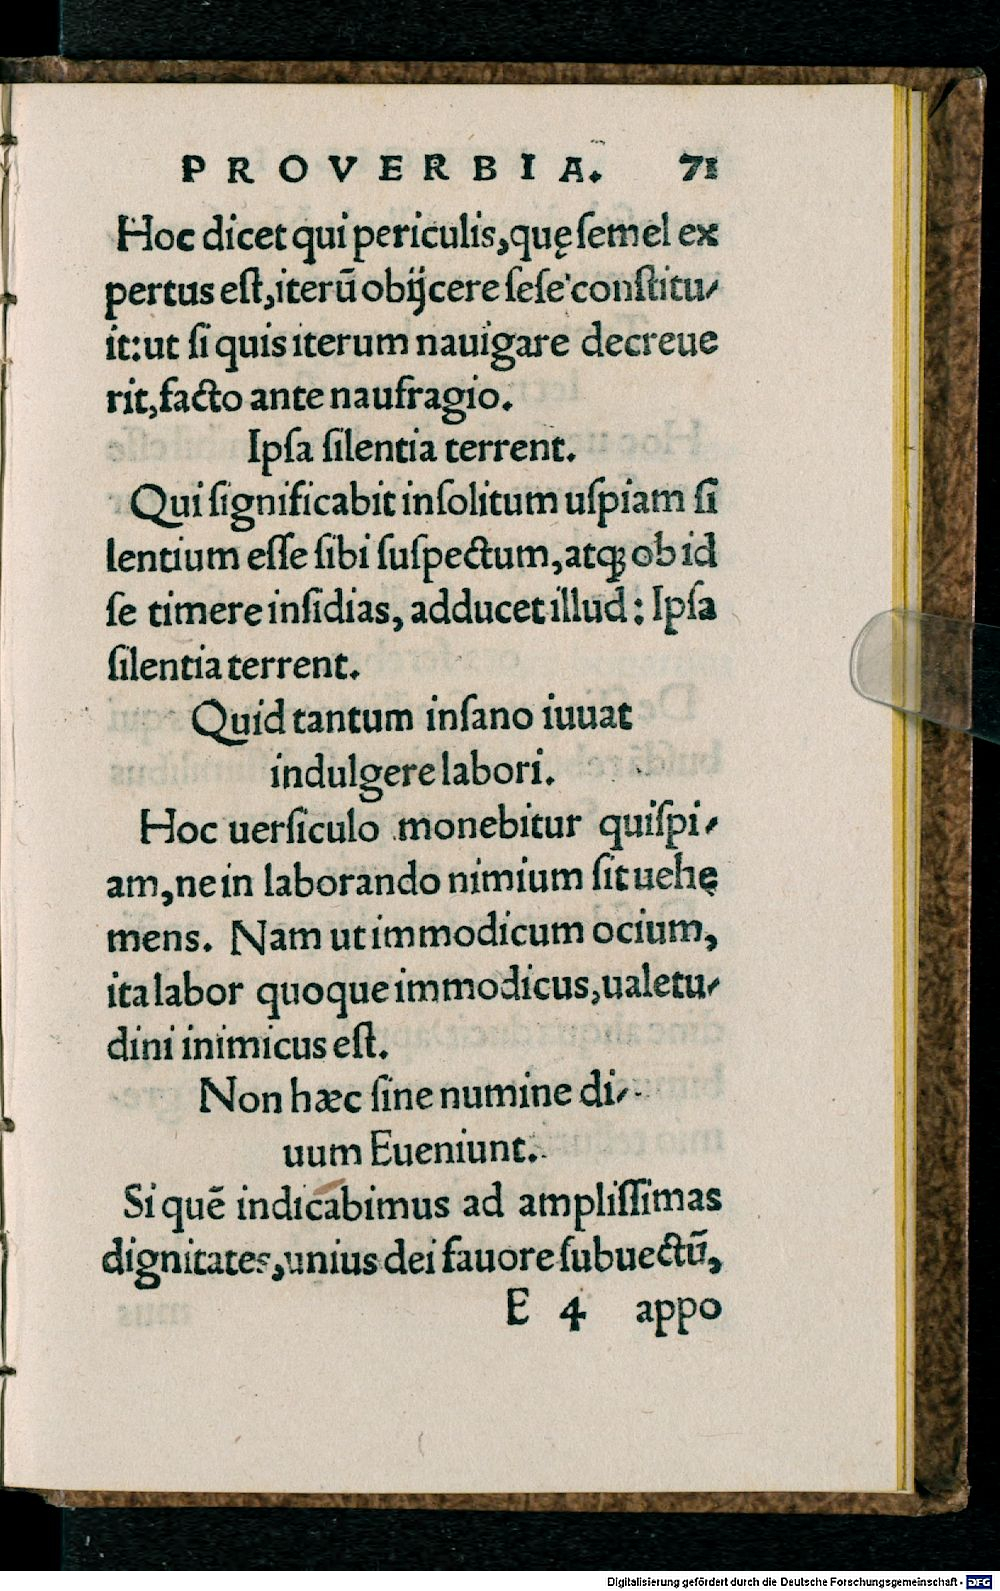 PROVERBIA. 71
Hoc dicet qui periculis, quę ſemel ex
pertus eſt, iterū obijcere ſeſe conſtitu-
it: ut ſi quis iterum nauigare decreue
rit, facto ante naufragio.
Ipſa ſilentia terrent.
Qui ſignificabit inſolitum uſpiam ſi
lentium eſſe ſibi ſuſpectum, atqꝫ ob id
ſe timere inſidias, adducet illud: Ipſa
ſilentia terrent.
Quid tantum inſano iuuat
indulgere labori.
Hoc uerſiculo monebitur quiſpi-
am, ne in laborando nimium ſit uehę
mens. Nam ut immodicum ocium,
ita labor quoque immodicus, ualetu-
dini inimicus eſt.
Non hæc ſine numine di-
uum Eueniunt.
Si quē indicabimus ad ampliſſimas
dignitates, unius dei fauore ſubuectū,
E 4 appo
Digitalisierung gefördert durch die Deutsche Forschungsgemeinschaft - DFG